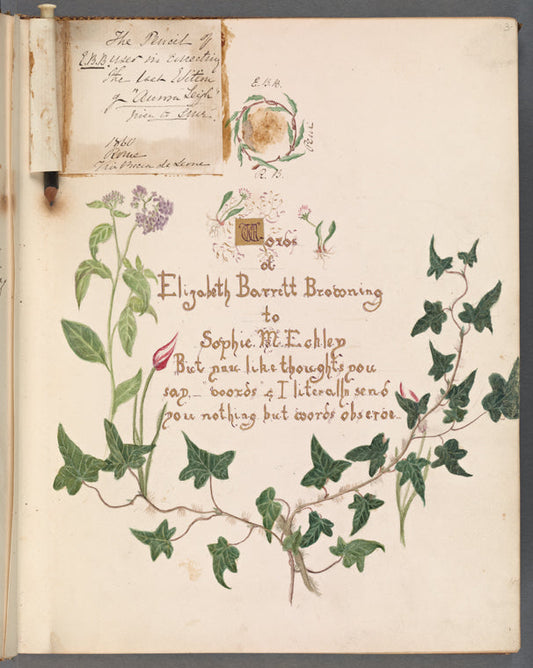 3
The Pencil of
E.B.B. used in correcting
the last Edition
of "Aurora Leigh"
given to
1860
Rome
E.B.B.
R.B.
Words
of
Elizabeth Barrett Browning
to
Sophie M. Eckley
But you like thoughts you
say - words & I literally send
you nothing but words observe